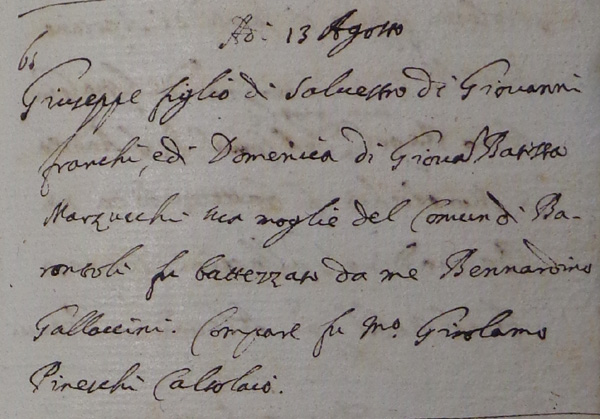 Adi 13 Agosto
61
Giuseppe figlio di Salvestro di Giovanni
franchi, e di Domenica di Giova Batista
Marzucchi sua moglie del Comun di Ba-
rontoli fu battezzato da me Bennardino
Gallaccini. Compare fu Mo. Girolamo
Pineschi Calsolaio.